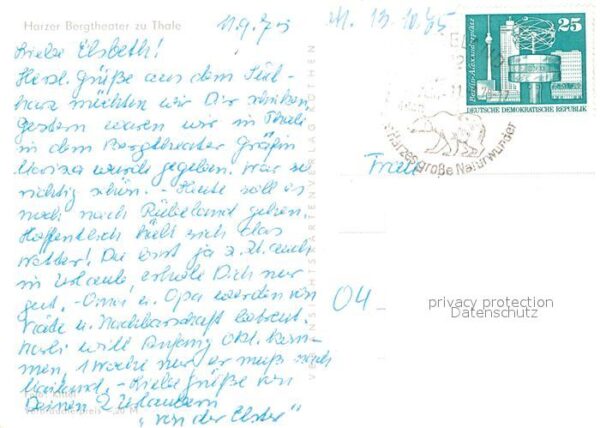 Harzer Bergtheater zu Thale
11.9.75
13.10.75
Liebe Elsbeth!
Herzl. Grüße aus dem Süd-
harz möchten wir Dir schicken
gestern waren wir in Thale
in dem Bergtheater Gräfin
Mariza wurde gegeben. War so
richtig schön. - Heute soll es
noch nach Rübeland gehen.
Hoffentlich hält sich das
Wetter! Du bist ja z. Zt. auch
im Urlaub, erhole Dich nur
gut. - Oma u. Opa werden von
u. Nachbarschaft betreut.
will Anfang Okt. kom-
men, 1 Woche nur er muß nach
Mailand. - Liebe Grüße von
Deinen 2 Urlaubern
"von der Elster"
Verbraucherpreis
M
25
Berlin-Alexanderplatz
DEUTSCHE DEMOKRATISCHE REPUBLIK
Harzes große Naturwunder
Frau
04
privacy protection
Datenschutz